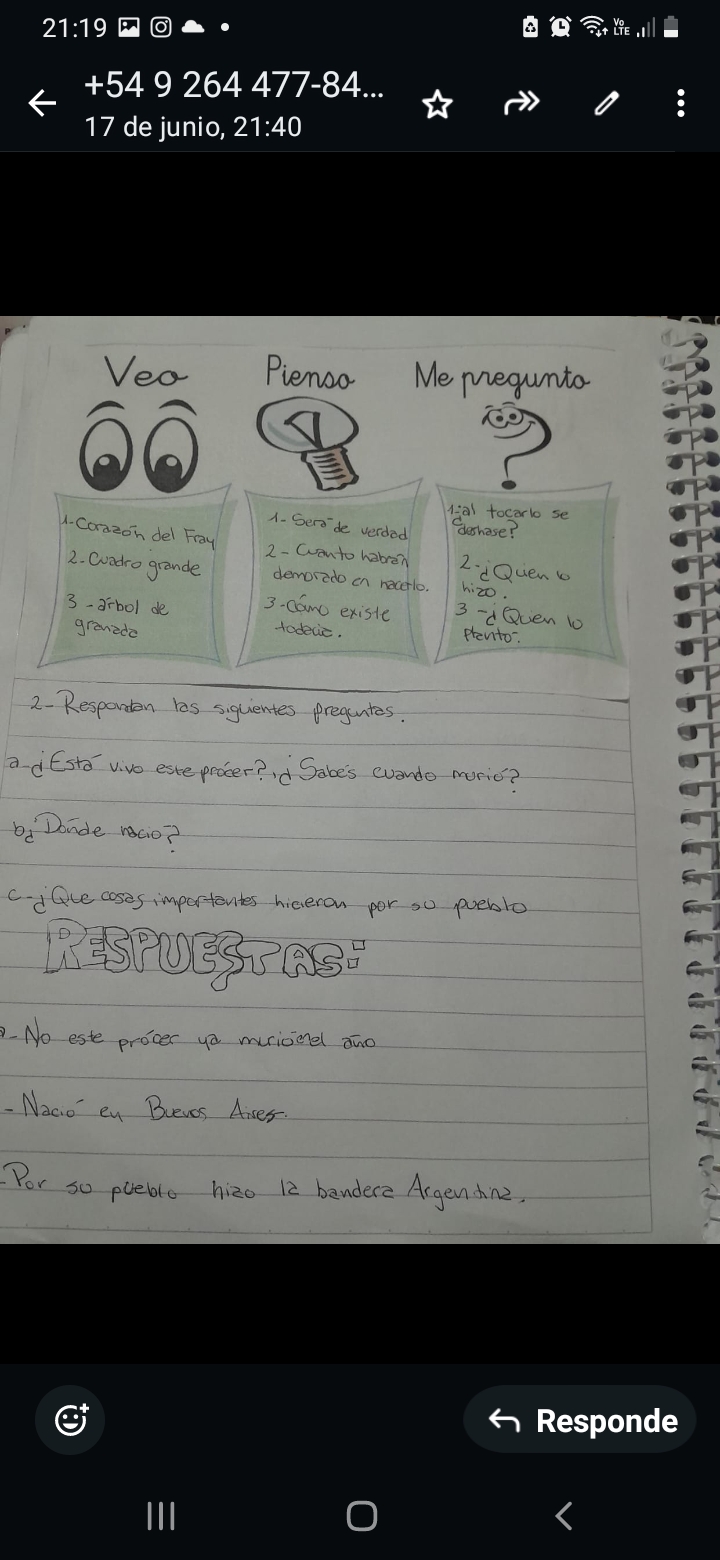 21:19
Vo
LTE
+54 9 264 477-84...
17 de junio, 21:40
Veo
Pienso
Me pregunto
1-Corazón del Fray
2-Cuadro grande
3 -árbol de
granada
1- Será de verdad
2 - Cuanto habrán
demorado en hacerlo.
3-Cómo existe
todavia.
1-¿al tocarlo se
deshase?
2-¿Quien lo
hizo.
3 -¿Quen lo
planto.
2-Respondan las siguientes preguntas.
a-¿Está vivo este prócer?,¿Sabés cuando murió?
b¿Dónde nacio?
c-¿Que cosas importantes hicieron por su pueblo
RESPUESTAS:
-No este prócer ya murió el año
-Nació en Buenos Aires.
-Por su pueblo hizo la bandera Argentina.
Responde